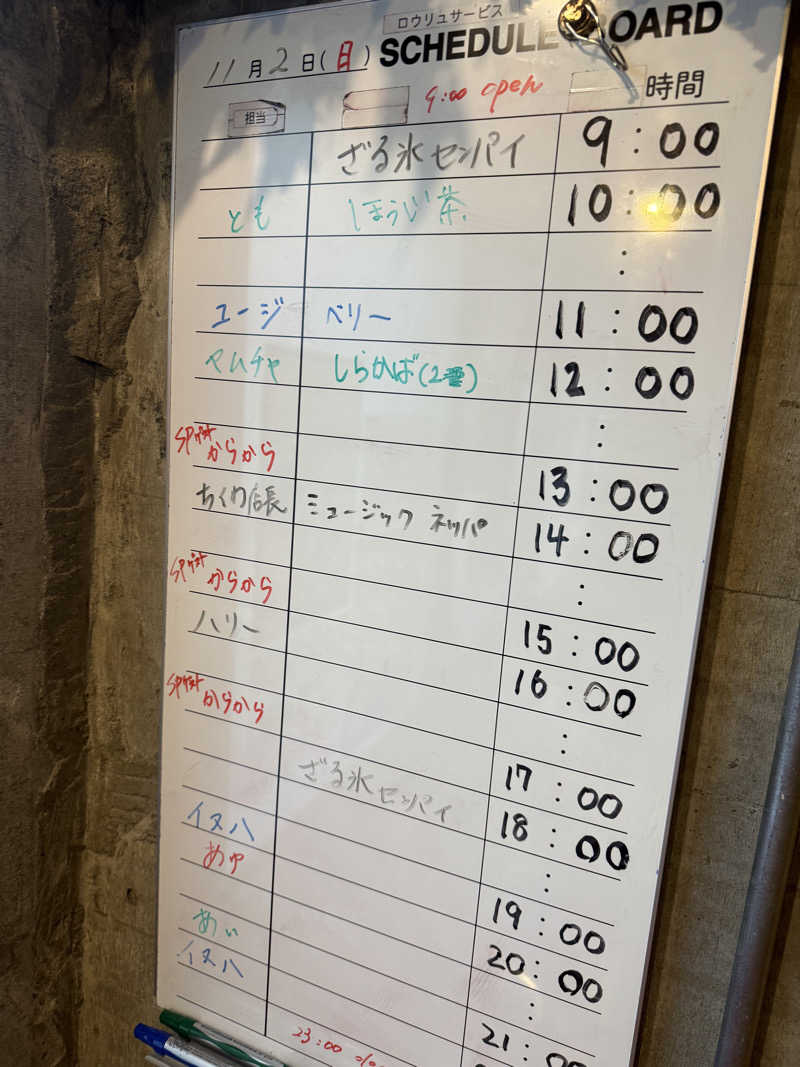 ロウリュサービス
11月2日(日) SCHEDULE BOARD
9:00 open
担当 時間
ざる氷センパイ 9:00
とも ほうじ茶 10:00
:
ユージ ベリー 11:00
マムチャ しらかば(2 12:00
:
SPゲスト からから 13:00
ちくわ店長 ミュージック ネッパ 14:00
:
SPゲスト からから 15:00
ハリー 16:00
:
SPゲスト からから 17:00
ざる氷センパイ 18:00
:
イヌハ 19:00
あゆ 20:00
:
あい 21:00
イヌハ
23:00